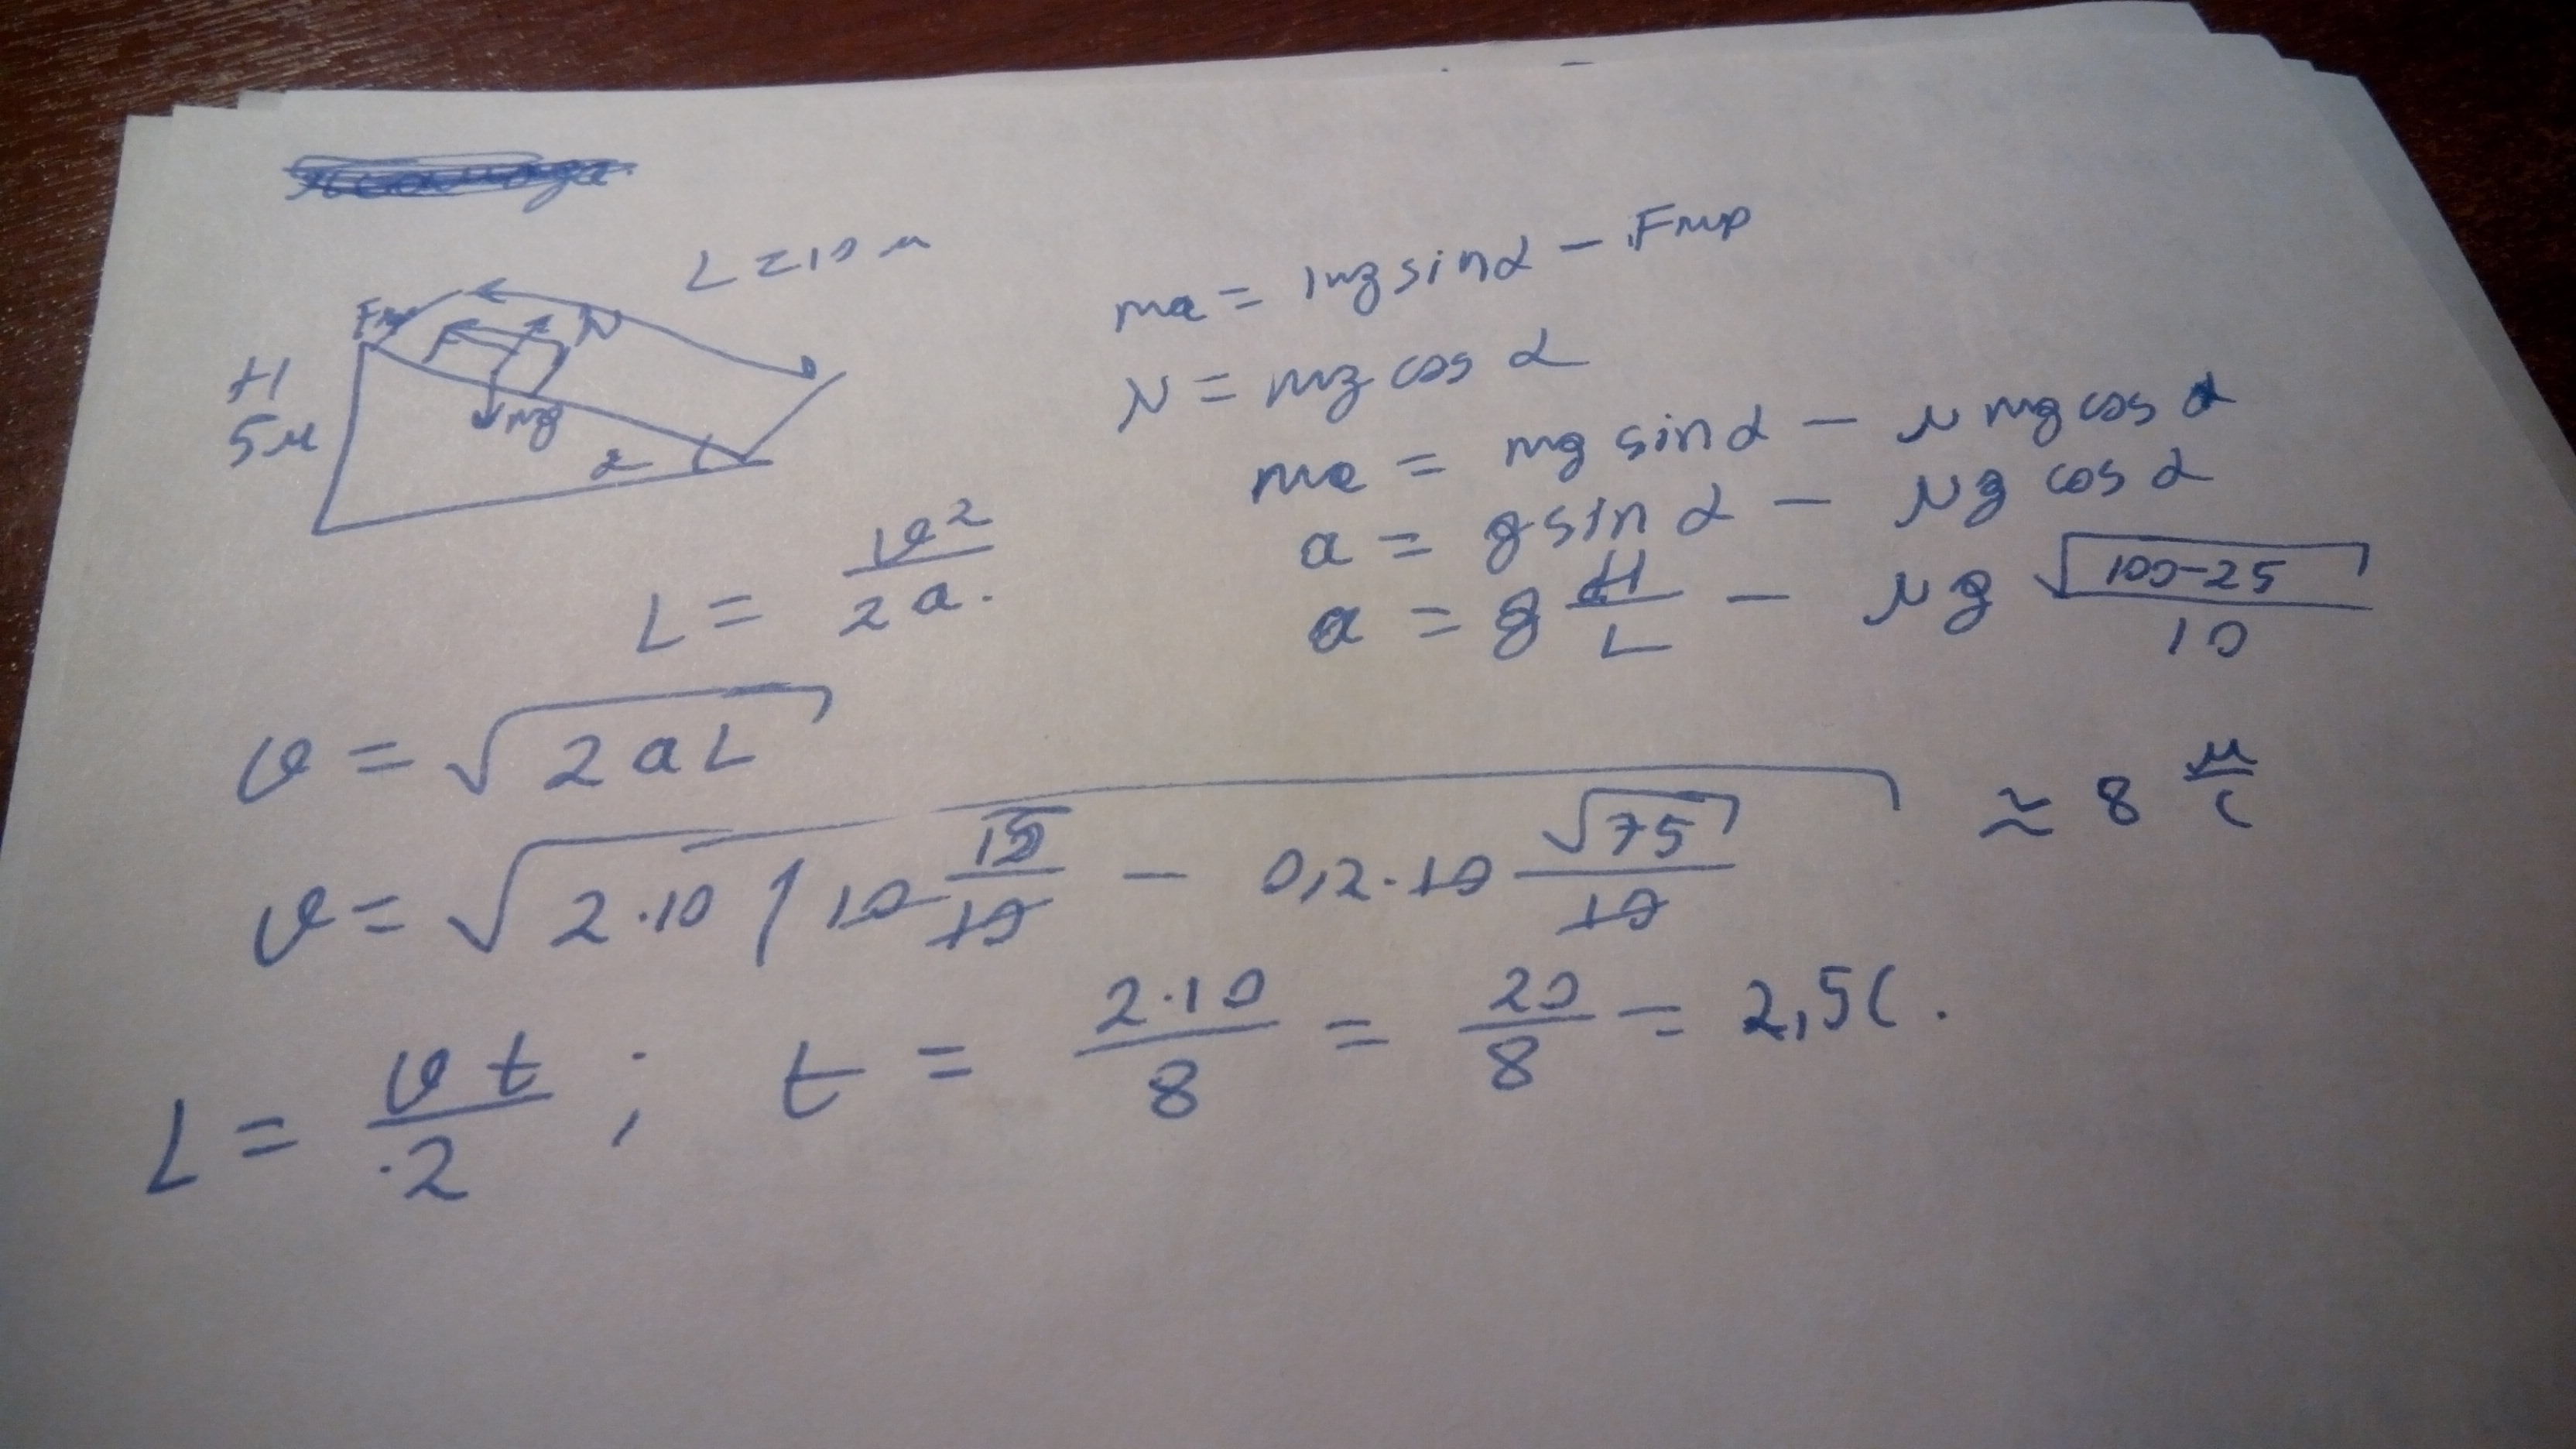 L = 10 м
Fтр
N
H
5м
mg
α
ma = mg sin α − Fтр
N = mg cos α
ma = mg sin α − μ mg cos α
a = g sin α − μg cos α
a = g H/L − μg √(100−25)/10
L = v²/2a.
v = √(2aL)
v = √(2·10 (10 5/10 − 0,2·10 √75/10 ≈ 8 м/с
L = vt/2 ; t = 2·10/8 = 20/8 = 2,5с.